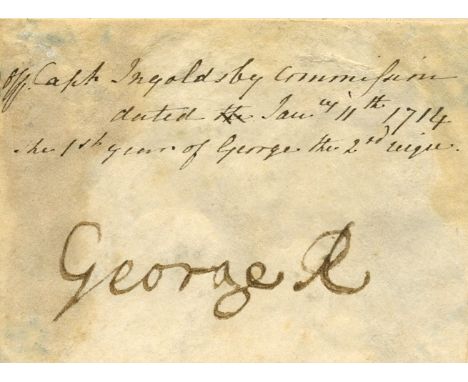 off Capt Ingoldsby Commission
dated the Jany 11th 1714
the 1st year of George the 2nd reign
George R